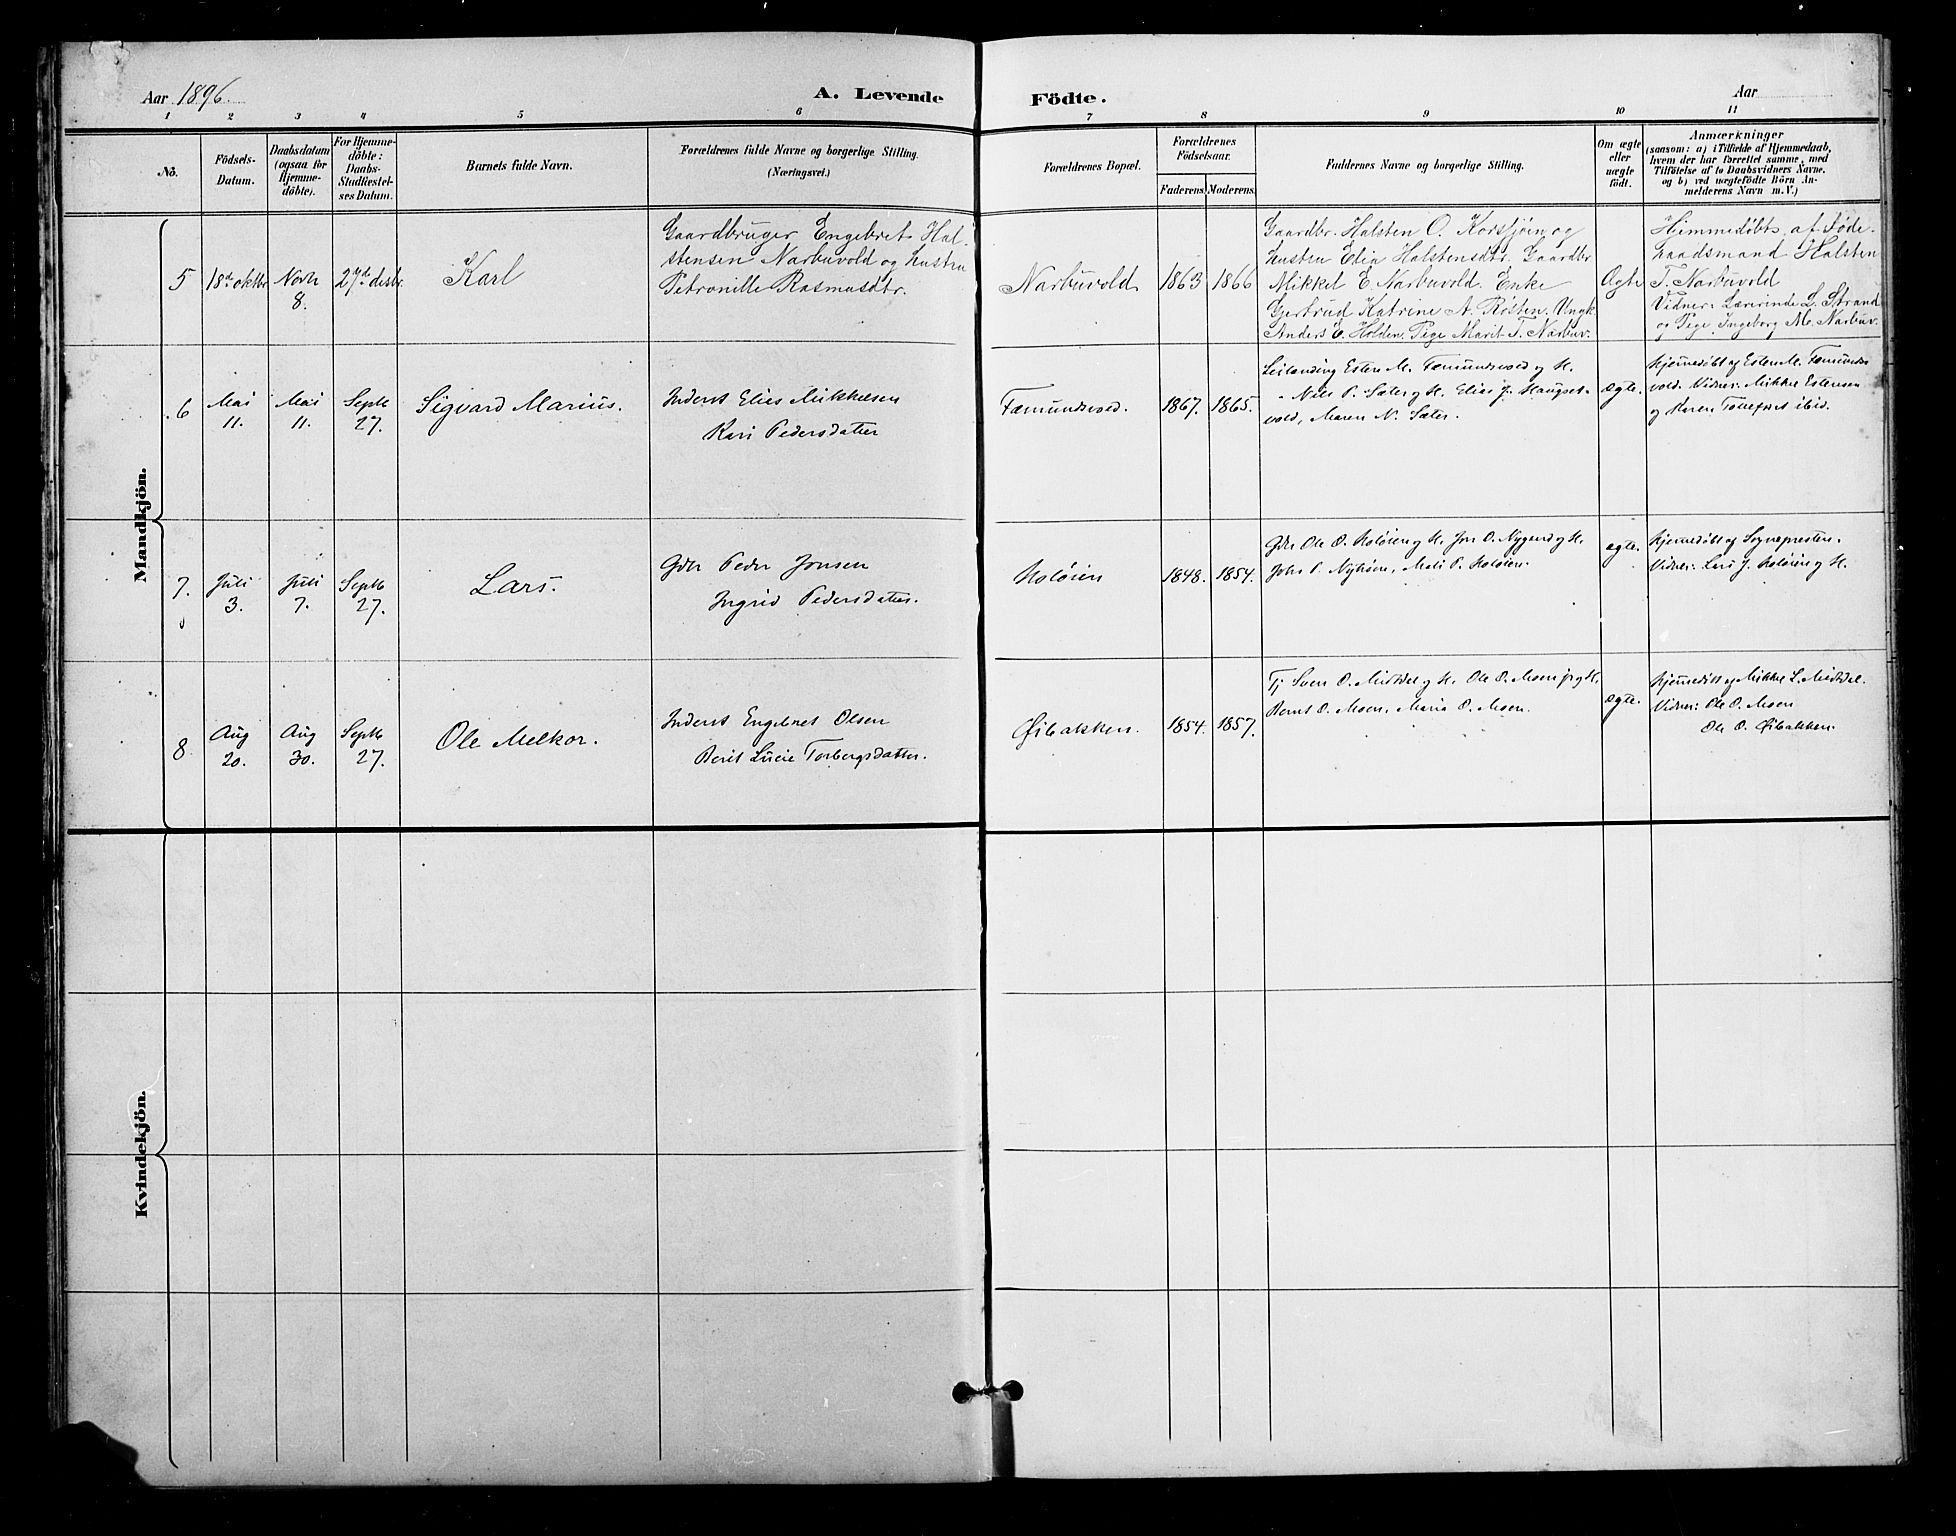 Aar 1896.
A. Levende Födte.
Aar
1 2 3 4 5 6 7 8 9 10 11
No.
Födsels-
Datum.
Daabsdatum
(ogsaa for
Hjemme-
döbte).
For Hjemme-
döbte:
Daabs-
Stadfæstel-
ses Datum.
Barnets fulde Navn.
Forældrenes fulde Navne og borgerlige Stilling.
(Næringsvei.)
Forældrenes Bopæl.
Forældrenes
Födselsaar.
Faderens. Moderens.
Faddernes Navne og borgerlige Stilling.
Om ægte
eller
uægte
födt.
Anmærkninger
(saasom: a) i Tilfælde af Hjemmedaab,
hvem der har forrettet samme, med
Tilföielse af to Daabsvidners Navne,
og b) ved uægtefödte Börn An-
melderens Navn m. V.)
Mandkjön.
5
18de oktbr
Novbr
8.
27de desbr.
Karl
Gaardbruger Engebret Hal-
stensen Narbuvold og hustru
Petronille Rasmusdtr.
Narbuvold
1863 1866
Gaardbr. Halsten O. Korssjøen og
hustru Elia Halstensdtr. Gaardbr
Mikkel E. Narbuvold. Enke
Gjertrud Katrine A. Røsten. Ungk.
Anders E. Holden. Pige Marit T. Narbuv.
Ægte
Himmedøbt af Føde-
raadsmand Halsten
T. Narbuvold
Vidner: Lærerinde L. Strand
og Pige Ingeborg M. Narbuv.
6
Mai
11.
Mai
11.
Septb
27.
Sigvard Marius.
Inderst Elias Mikkelsen
Kari Pedersdatter
Fæmundsvold.
1867. 1865.
Leilænding Esten M. Fæmundsvold og H.
" Nils P. Sæter og H. Elias J. Haugset-
vold, Maren N. Sæter.
ægte.
Hjemmedøbt af Esten M. Fæmunds-
vold. Vidner: Mikkel Estensen
og Karen ibid.
7.
Juli
3.
Juli
7.
Septb
27.
Lars.
Gbr Peder Jonsen
Ingrid Pedersdatter.
Holøien
1848. 1854.
Gbr Ole O. Holøien og H. Jon O. Nygaard og H.
John P. Nyhøien, Mali P. Holøien.
ægte.
Hjemmedøbt af Sognepresten.
Vidner: Lars J. Holøien og H.
8
Aug
20.
Aug
30.
Septb
27.
Ole Melkor.
Inderst Engebret Olsen
Berit Lucie Torbergsdatter.
Øibakken.
1854. 1857.
Tj Sven O. Midtdal og H. Ole O. Moen jr og H.
Bernt O. Moen, Maria O. Moen.
ægte.
Hjemmedøbt af Mikkel L. Midtdal.
Vidner: Ole O. Moen
Ole O. Øibakken.
Kvindekjön.